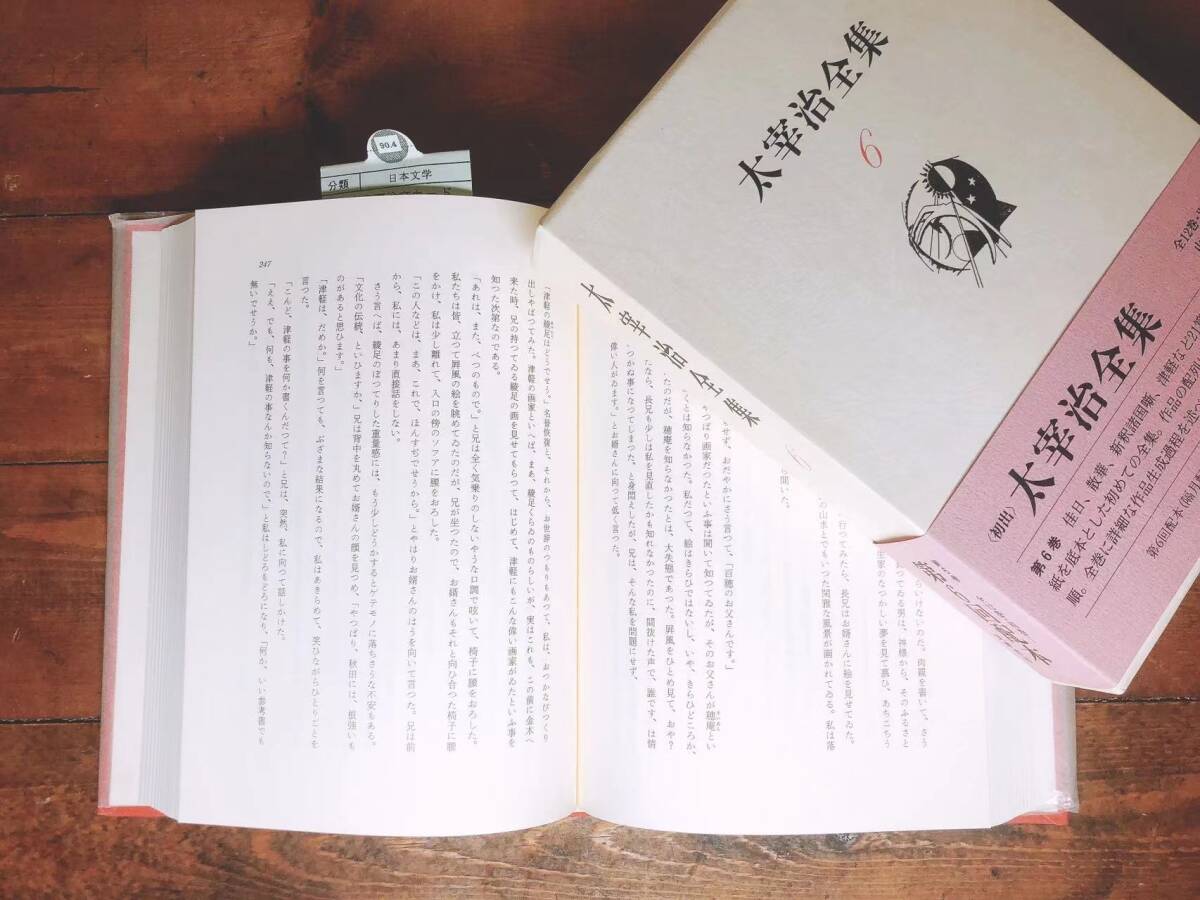 90.4
分類 日本文学
太宰治全集
6
太宰治全集
6
全12巻
〈初出〉太宰治全集
第6巻 佳日、散華、新釈諸国噺、津軽など2
紙を底本とした初めての全集。作品の配列
全巻に詳細な作品生成過程を述
順。
第6回配本(隔月
いけないのだ。肉親を書いて、さう
てゐる男は、神様から、そのふるさと
生家のなつかしい夢を見て慕ひ、あちこちう
行つてみたら、長兄はお婿さんに絵を見せてゐた。
の山水とでもいつた閑雅な風景が画かれてゐる。私は落
聞いた。
せず、おだやかにさう言つて、「百穂のお父さんです。」
やつぱり画家だつたといふ事は聞いて知つてゐたが、そのお父さんが穂庵とい
くとは知らなかつた。私だつて、絵はきらひではないし、いや、きらひどころか、
たのだが、穂庵を知らなかつたとは、大失態であつた。屏風をひとめ見て、おや?
たなら、長兄も少しは私を見直したかも知れなかつたのに、間抜けた声で、誰です、は情
つかぬ事になつてしまつた、と身悶えしたが、兄は、そんな私を問題にせず、
偉い人がゐます。」とお婿さんに向つて低く言つた。
247
「津軽の綾足はどうでせう。」名誉恢復と、それから、お世辞のつもりもあつて、私は、おつかなびつくり
出しやばつてみた。津軽の画家といへば、まあ、綾足くらゐのものらしいが、実はこれも、この前に金木へ
来た時、兄の持つてゐる綾足の画を見せてもらつて、はじめて、津軽にもこんな偉い画家がゐたといふ事を
知つた次第なのである。
「あれは、また、べつのもので。」と兄は全く気乗りのしないやうな口調で呟いて、椅子に腰をおろした。
私たちは皆、立つて屏風の絵を眺めてゐたのだが、兄が坐つたので、お婿さんもそれと向ひ合つた椅子に腰
をかけ、私は少し離れて、入口の傍のソファに腰をおろした。
「この人などは、まあ、これで、ほんすぢでせうから。」とやはりお婿さんのはうを向いて言つた。兄は前
から、私には、あまり直接話をしない。
さう言へば、綾足のぼつてりした重量感には、もう少しどうかするとゲテモノに落ちさうな不安もある。
「文化の伝統、といひますか、」兄は背中を丸めてお婿さんの顔を見つめ、「やつぱり、秋田には、根強いも
のがあると思ひます。」
「津軽は、だめか。」何を言つても、ぶざまな結果になるので、私はあきらめて、笑ひながらひとりごとを
言つた。
「こんど、津軽の事を何か書くんだつて?」と兄は、突然、私に向つて話しかけた。
「ええ、でも、何も、津軽の事なんか知らないので、」と私はしどろもどろになり、「何か、いい参考書でも
無いでせうか。」